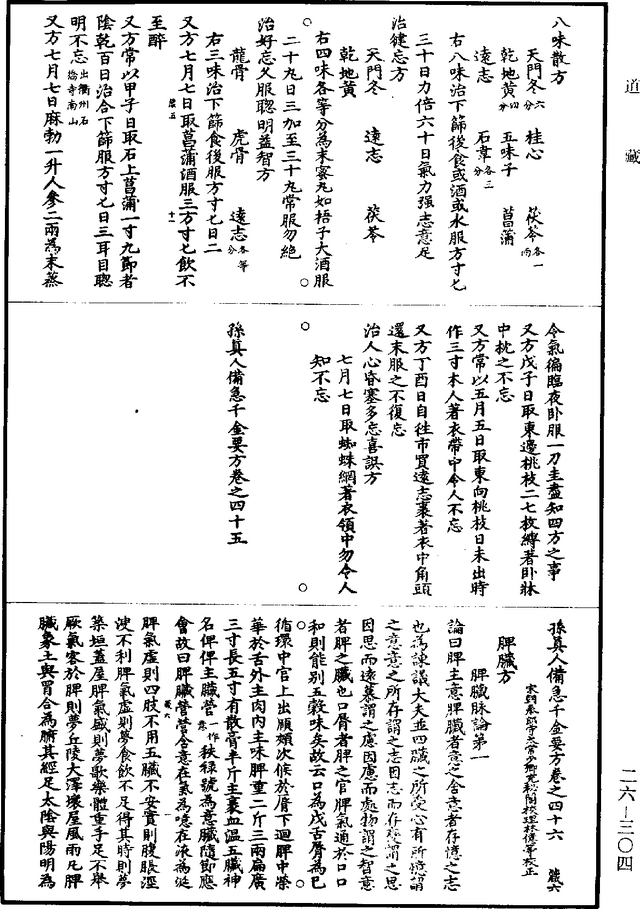 道藏
八味散方
天門冬六分 桂心 茯苓各一兩
乾地黃四分 五味子 菖蒲
遠志 石韋各三分
右八味治下篩後食或酒或水服方寸匕
三十日力倍六十日氣力强志意足
治健忘方
天門冬 遠志 茯苓
乾地黃
右四味各等分為末蜜丸如梧子大酒服
二十九日三加至三十九常服勿絶
治好忘久服聰明益智方
龍骨 虎骨 遠志各等分
右三味治下篩食後服方寸匕日二
又方七月七日取菖蒲酒服三方寸匕飲不
至醉
又方常以甲子日取石上菖蒲一寸九節者
陰乾百日治合下篩服方寸匕日三耳目聰
明不忘出衢州石橋寺南山
又方七月七日麻勃一升人參二兩為末蒸
令氣徧臨夜卧服一刀圭盡知四方之事
又方戊子日取東邊桃枝二七枚縛著卧牀
中枕之不忘
又方常以五月五日取東向桃枝日未出時
作三寸木人著衣帶中令人不忘
又方丁酉日自往市買遠志裹著衣中角頭
還末服之不復忘
治人心昏塞多忘喜誤方
七月七日取蜘蛛網著衣領中勿令人
知不忘
孫真人備急千金要方卷之四十五
孫真人備急千金要方卷之四十六
脾臟方
脾臟脉論第一
論曰脾主意脾臟者意之舍意者存憶之志
也為諫議大夫並四臟之所受心有所憶謂
之意意之所存謂之志因志而存變謂之思
因思而遠慕謂之慮因慮而處物謂之智意
者脾之臟也口脣者脾之官脾氣通於口口
和則能別五穀味矣故云口為戊舌脣為己
循環中宮上出頤頰次候於脣下迴脾中榮
華於舌外主肉內主味脾重二斤三兩扁廣
三寸長五寸有散膏半斤主裹血温五臟神
名俾俾主臟營一作秩祿號為意臟隨節應
會故曰脾臟營營舍意在氣為噫在液為涎
脾氣虛則四肢不用五臟不安實則腹脹涇
溲不利脾氣虛則夢飲食不足得其時則夢
築垣蓋屋脾氣盛則夢歌樂體重手足不舉
厥氣客於脾則夢丘陵大澤壞屋風雨凡脾
臟象土與胃合為腑其經足太陰與陽明為
二六—三〇四